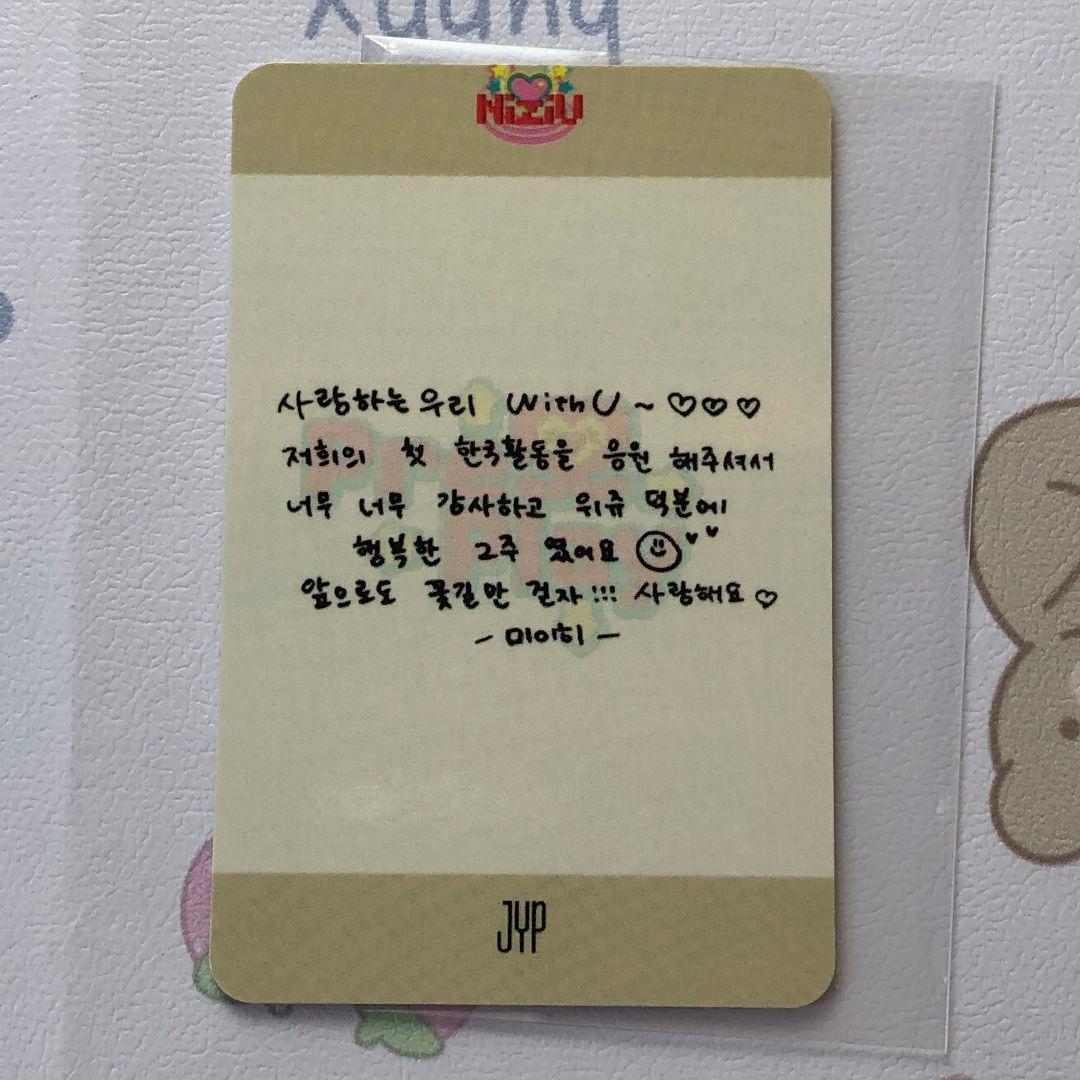 xuang
NiziU
사랑하는 우리 WithU ~ ♡♡♡
저희의 첫 한국활동을 응원 해주셔서
너무 너무 감사하고 위쥬 덕분에
행복한 2주 였어요 ☺♥♥
앞으로도 꽃길만 걷자!!! 사랑해요♡
- 미이히 -
Press Play
JYP